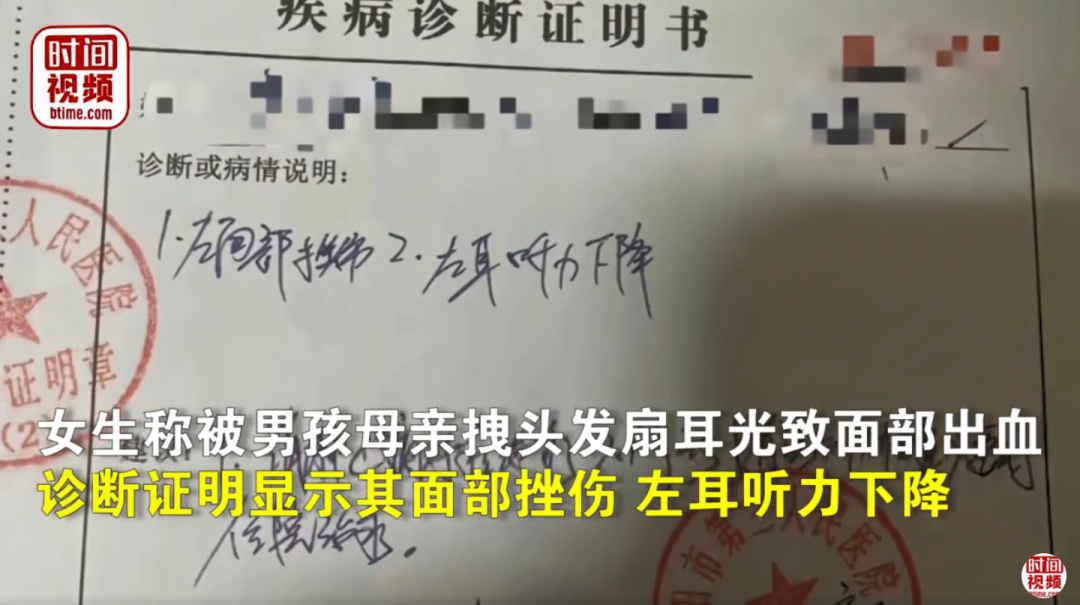 疾病诊断证明书
时间
视频
btime.com
诊断或病情说明：
1.左面部挫伤 2.左耳听力下降
人民医院
证明章
女生称被男孩母亲拽头发扇耳光致面部出血
诊断证明显示其面部挫伤 左耳听力下降
住院治疗。
人民医院
时间
视频
btime.com